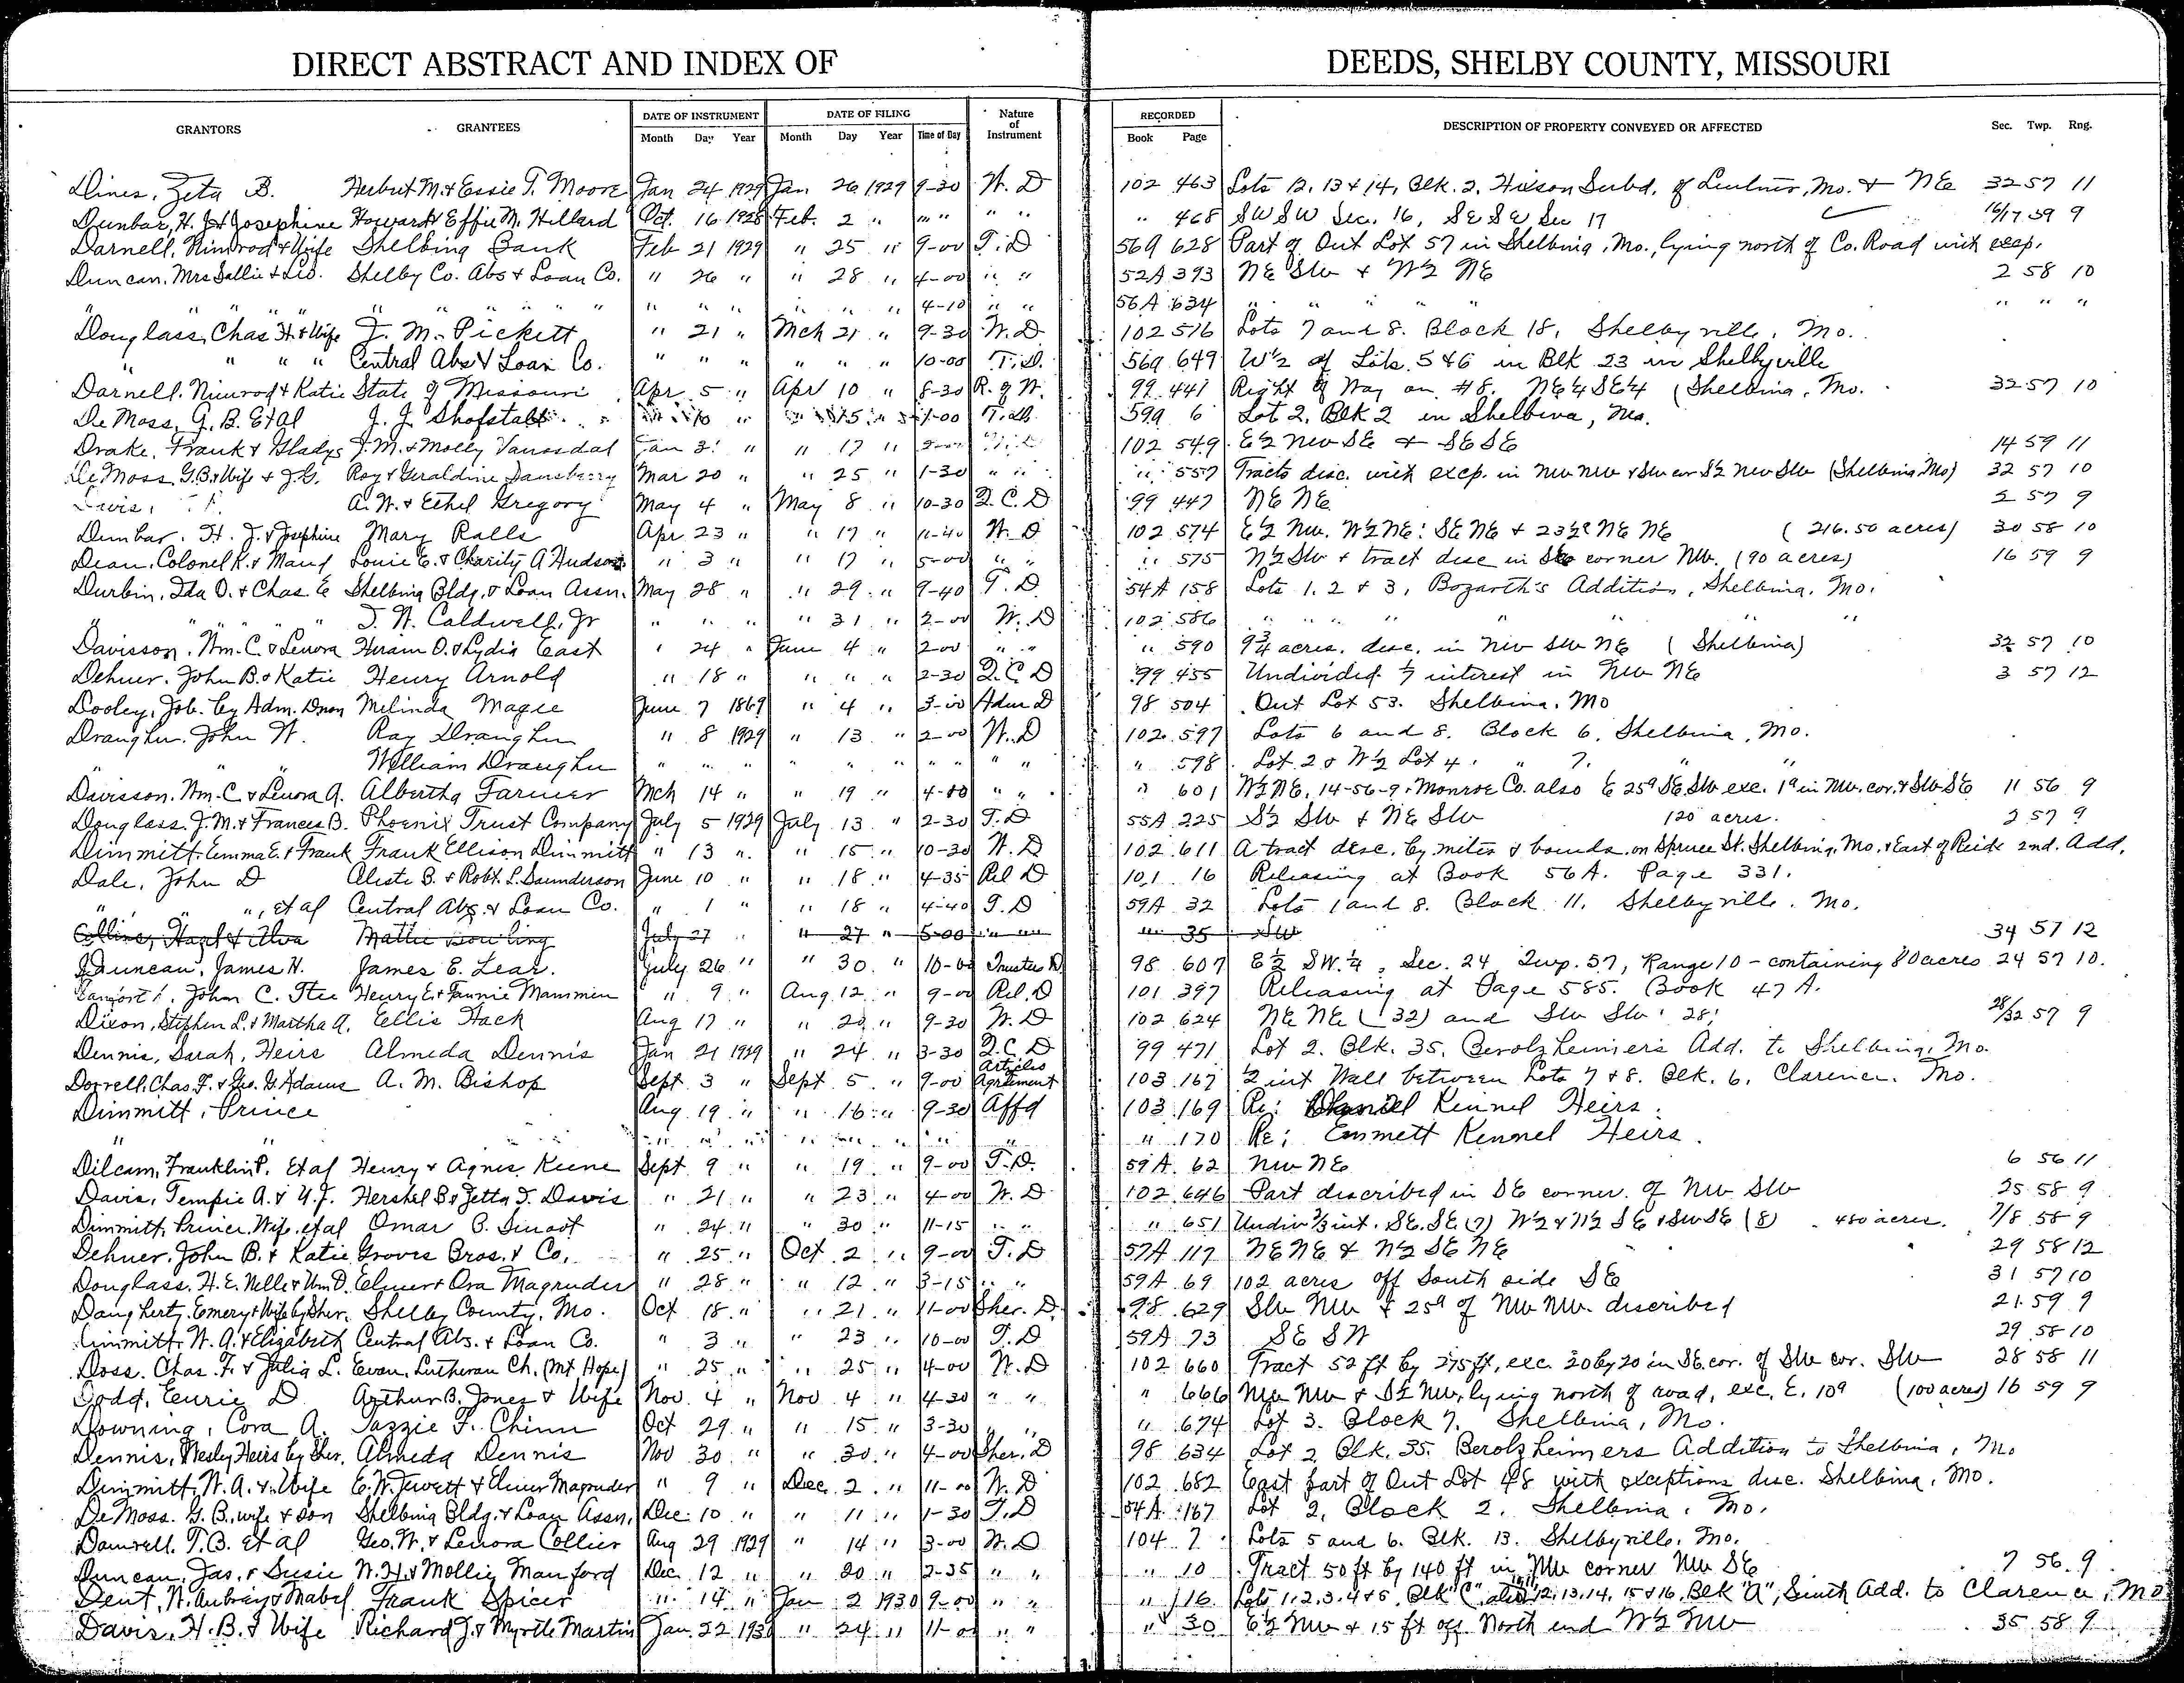 DIRECT ABSTRACT AND INDEX OF DEEDS, SHELBY COUNTY, MISSOURI
GRANTORS GRANTEES DATE OF INSTRUMENT DATE OF FILING Nature of Instrument RECORDED DESCRIPTION OF PROPERTY CONVEYED OR AFFECTED Sec. Twp. Rng.
Month Day Year Month Day Year Time of Day Book Page
Dines, Zeta B. Herbert M. & Essie T. Moore Jan 24 1929 Jan 26 1929 9-30 W. D 102 463 Lots 12, 13 & 14, Blk. 2, Hixson Subd. of Lentner, Mo. & NE 32 57 11
Dunbar, H. J. & Josephine Howard & Effie M. Hillard Oct. 16 1928 Feb. 2 " " " " " " 468 SW SW Sec. 16, SE SE Sec 17 16/17 59 9
Darnell, Nimrod & Wife Shelbina Bank Feb 21 1929 " 25 " 9-00 T. D 56A 628 Part of Out Lot 57 in Shelbina, Mo., lying north of Co. Road with excp.
Duncan, Mrs Sallie & Leo. Shelby Co. Abs & Loan Co. " 26 " " 28 " 4-00 " " 52A 393 NE SW & W½ NE 2 58 10
" " " " " " " " " " " " " 4-10 " " 56A 634 " " " " " " " "
Douglass, Chas H. & Wife J. M. Pickett " 21 " Mch 21 " 9-30 W. D 102 516 Lots 7 and 8. Block 18, Shelbyville, Mo.
" " " Central Abs & Loan Co. " " " " " " 10-00 T. D. 56A 649 W½ of Lots 5 & 6 in Blk 23 in Shelbyville
Darnell, Nimrod & Katie State of Missouri Apr 5 " Apr 10 " 8-30 R. of W. 99 441 Right of Way on #8. NE¼ SE¼ (Shelbina, Mo. 32 57 10
De Moss, G. B. Et al J. J. Shofstall " 10 " " 15 " 1-00 T. D. 59A 6 Lot 2, Blk 2 in Shelbina, Mo.
Drake, Frank & Gladys J. M. & Molly Vanosdal Jan 3 " " 17 " 102 549 E½ NW SE & SE SE 14 59 11
De Moss, G. B. & Wife & J. G. Roy & Geraldine Dansberry Mar 20 " " 25 " 1-30 " " " 557 Tracts desc. with excp. in NW NW & SW cor S½ NW SW (Shelbina, Mo) 32 57 10
Davis, A. W. & Ethel Gregory May 4 " May 8 " 10-30 Q. C. D 99 447 NE NE 2 57 9
Dunbar, H. J. & Josephine Mary Ralls Apr 23 " " 17 " 11-40 W. D 102 574 E½ NW. W½ NE: SE NE & 23½ª NE NE (216.50 acres) 30 58 10
Dean, Colonel K. & Maud Louie E. & Charity A Hudson " 3 " " 17 " 5-00 " " " 575 N½ SW & tract desc in corner NW. (90 acres) 16 59 9
Durbin, Ida O. & Chas. E Shelbina Bldg. & Loan Assn. May 28 " " 29 " 9-40 T. D. 54A 158 Lots 1, 2 & 3, Bozarth's Addition, Shelbina, Mo.
" " " " T. W. Caldwell, Jr " " " " 31 " 2-00 W. D 102 586 " " " " " " "
Davisson, Wm. C. & Lenora Hiram O. & Lydia East " 24 " June 4 " 2-00 " " " 590 9¾ acres. desc. in NW SW NE (Shelbina) 32 57 10
Dehner, John B. & Katie Henry Arnold " 18 " " " " 2-30 Q. C. D 99 455 Undivided 1/7 interest in NW NE 3 57 12
Dooley, Job. by Adm. Dnon Melinda Magee June 7 1869 " 4 " 3-00 Adm D 98 504 Out Lot 53. Shelbina, Mo
Draughn, John W. Ray Draughn " 8 1929 " 13 " 2-00 W. D 102 597 Lots 6 and 8. Block 6, Shelbina, Mo.
" " " William Draughn " " " " " " " " " " 598 Lot 2 & W½ Lot 4 " " 7. " "
Davisson, Wm. C. & Lenora A. Albertha Farmer Mch 14 " " 19 " 4-00 " " " 601 W½ NE, 14-56-9, Monroe Co. also E 25ª SE SW exc. 1ª in NW. cor. & SW SE 11 56 9
Douglass, J. M. & Frances B. Phoenix Trust Company July 5 1929 July 13 " 2-30 T. D 55A 225 S½ SW & NE SW 120 acres. 2 57 9
Dimmitt, Emma E. & Frank Frank Ellison Dimmitt " 13 " " 15 " 10-30 W. D 102 611 A tract desc. by metes & bounds on Spruce St. Shelbina, Mo. & East of Reids 2nd. Add.
Dale, John D Aleste B. & Robt. L. Saunderson June 10 " " 18 " 4-35 Rel D 101 16 Releasing at Book 56A. Page 331.
" " ", et al Central Abs. & Loan Co. " 1 " " 18 " 4-40 T. D 59A 32 Lots 1 and 8. Block 11. Shelbyville, Mo.
Collins, Hazel & Alva Mattie Bowling July 27 " " 27 " 5-00 " " " 35 SW 34 57 12
Duncan, James H. James E. Lear. July 26 " " 30 " 10-00 Trustee D 98 607 E½ SW.¼, Sec. 24 Twp. 57, Range 10 - containing 80 acres 24 57 10.
John C. Tree Henry E. & Fannie Mammen " 9 " Aug 12 " 9-00 Rel. D 101 397 Releasing at Page 585. Book 47 A.
Dixon, Stephen L. & Martha A. Ellis Hack Aug 17 " " 20 " 9-30 W. D 102 624 NE NE (32) and SW SW: 28: 28/32 57 9
Dennis, Sarah, Heirs Almeda Dennis Jan 21 1929 " 24 " 3-30 Q. C. D 99 471 Lot 2. Blk. 35. Berolzheimer's Add. to Shelbina, Mo.
Dorrell, Chas. F. & Geo. G. Adams A. M. Bishop Sept 3 " Sept 5 " 9-00 Articles Agreement 103 167 ½ int Wall between Lots 7 & 8. Blk. 6, Clarence, Mo.
Dimmitt, Prince Aug. 19 " " 16 " 9-30 Affd 103 169 Re: Daniel Kennel Heirs.
" " " " " " " " " " " 170 Re: Emmett Kennel Heirs.
Dilcam, Franklin P. Et al Henry & Agnes Keene Sept 9 " " 19 " 9-00 T. D. 59A 62 NW NE 6 56 11
Davis, Tempie A. & Y. J. Hershel B. & Zetta I. Davis " 21 " " 23 " 4-00 W. D 102 646 Part described in SE corner of NW SW 25 58 9
Dimmitt, Prince, Wife, et al Omar B. Sinoot " 24 " " 30 " 11-15 " " " 651 Undiv ⅔ int. SE. SE (7) W½ & N½ SE & SW SE (8) 480 acres. 7/8 58 9
Dehner, John B. & Katie Groves Bros. & Co. " 25 " Oct 2 " 9-00 T. D 57A 117 NE NE & N½ SE NE 29 58 12
Douglass, H. E. Nelle & Wm. D. Elmer & Ora Magruder " 28 " " 12 " 3-15 " " 59A 69 102 acres off South side SE 31 57 10
Daugherty, Emery & Wife by Sher. Shelby County, Mo. Oct 18 " " 21 " 11-00 Sher. D. 98 629 SW NW & 25ª of NW NW. described 21 59 9
Dimmitt, W. A. & Elizabeth Central Abs. & Loan Co. " 3 " " 23 " 10-00 T. D 59A 73 SE SW 29 58 10
Doss, Chas. F. & Julia L. Evan. Lutheran Ch. (Mt Hope) " 25 " " 25 " 4-00 W. D 102 660 Tract 52 ft by 275 ft, exc. 20 by 20 in SE. cor. of SW cor. SW 28 58 11
Dodd, Eurie D Arthur B. Jones & Wife Nov. 4 " Nov 4 " 4-30 " " " 666 NW NW & S½ NW, lying north of road, exc. E. 10ª (100 acres) 16 59 9
Downing, Cora A. Lazzie F. Chinn Oct 29 " " 15 " 3-30 " " " 674 Lot 3. Block 7. Shelbina, Mo.
Dennis, Wesley Heirs by Sher. Almeda Dennis Nov 30 " " 30 " 4-00 Sher. D 98 634 Lot 2, Blk. 35. Berolzheimers Addition to Shelbina, Mo
Dimmitt, W. A. & Wife E. W. Jewett & Elmer Magruder " 9 " Dec. 2 " 11-00 W. D 102 682 East part of Out Lot 48 with exceptions desc. Shelbina, Mo.
De Moss. G. B., wife & son Shelbina Bldg. & Loan Assn. Dec. 10 " " 11 " 1-30 T. D 54A 167 Lot 2, Block 2. Shelbina, Mo.
Damrell. T. B. et al Geo. W. & Lenora Collier Aug 29 1929 " 14 " 3-00 W. D 104 7 Lots 5 and 6. Blk. 13. Shelbyville, Mo.
Duncan, Jas. & Susie W. H. & Mollie Manford Dec. 12 " " 20 " 2-35 " " " 10 Tract 50 ft by 140 ft in NW corner NW SE 7 56 9
Dent, W. Aubrey & Mabel Frank Spicer " 14 " Jan 2 1930 9-00 " " " 16 Lots 1, 2, 3, 4 & 5, Blk "C", also 12, 13, 14, 15 & 16, Blk "A", South Add. to Clarence, Mo
Davis, H. B. & Wife Richard J. & Myrtle Martin Jan. 22 1930 " 24 " 11-00 " " " 30 E½ NW & 15 ft off North end W½ NW 35 58 9